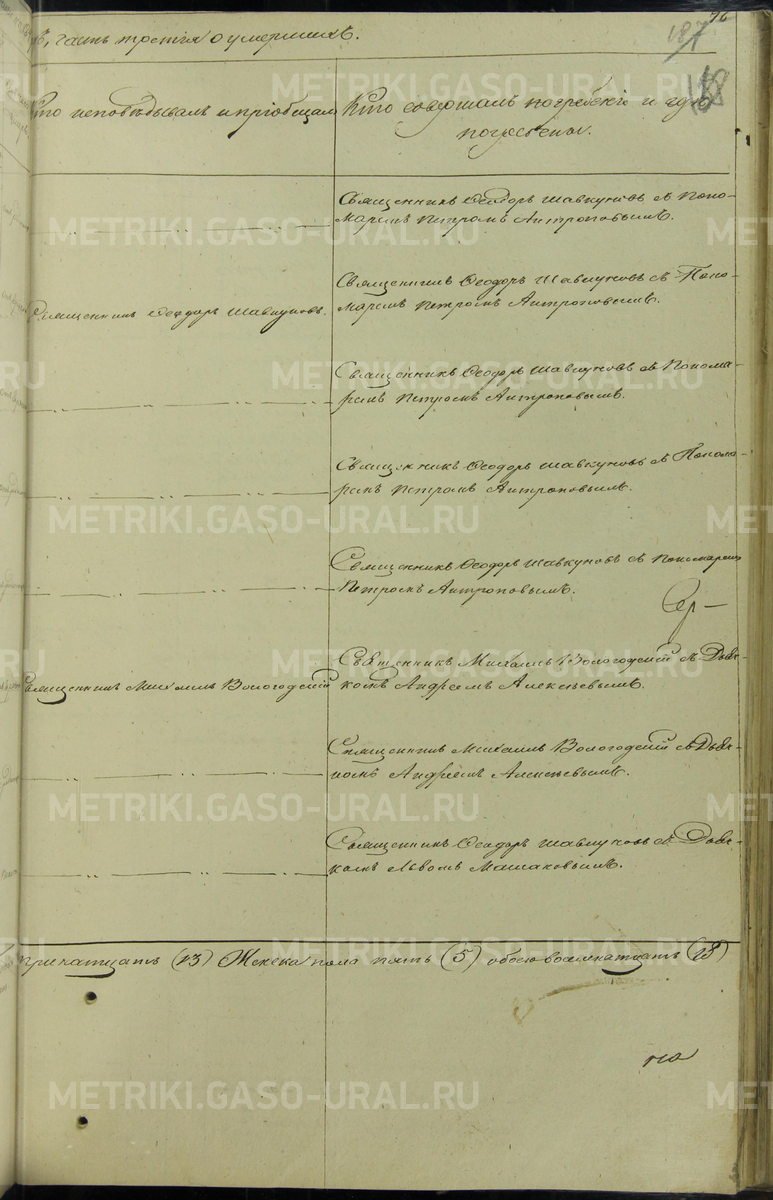 76
187
188
часть третія о умершихъ.
Кто исповѣдывалъ и пріобщалъ
Кто совершалъ погребеніе и гдѣ
погребены.
Священникъ Ѳеодоръ Шавкуновъ съ Поно-
маремъ Петромъ Антроповымъ.
Священникъ Ѳеодоръ Шавкуновъ.
Священникъ Ѳеодоръ Шавкуновъ съ Поно-
маремъ Петромъ Антроповымъ.
Священникъ Ѳеодоръ Шавкуновъ съ Понома-
ремъ Петромъ Антроповымъ.
Священникъ Ѳеодоръ Шавкуновъ съ Понома-
ремъ Петромъ Антроповымъ.
Священникъ Ѳеодоръ Шавкуновъ съ Пономаремъ
Петромъ Антроповымъ.
Сер-
Священникъ Михаилъ Вологодскій
Священникъ Михаилъ Вологодскій съ Дьяч-
комъ Андреемъ Алексѣевымъ.
Священникъ Михаилъ Вологодскій съ Дьяч-
комъ Андреемъ Алексѣевымъ.
Священникъ Ѳеодоръ Шавкуновъ съ Дьяч-
комъ Львомъ Машановымъ.
тринатцать (13) Женска пола пять (5) обоего восемнатцать (18)
по
METRIKI.GASO-URAL.RU